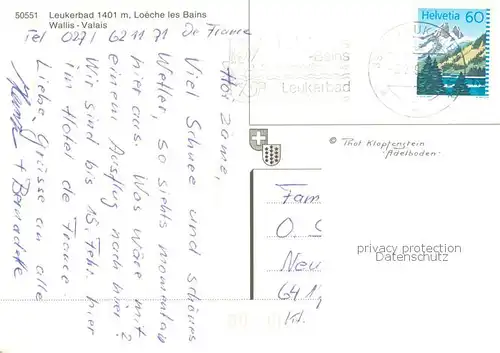 50551 Leukerbad 1401 m, Loèche les Bains
Wallis - Valais
Tel 027/ 62 11 71 De France
Hoi zäme,
Viel Schnee und schönes
Wetter, so siehts momentan
hier aus. Was wäre mit
einem Ausflug nach hier?
Wir sind bis 15. Febr. hier
im Hotel de France.
Liebe Grüsse an alle
+ Bernadette
Helvetia 60
-Bains
Leukerbad
© Thal Klopfenstein
Adelboden
Fam
O. S
Neu
641
Kt.
privacy protection
Datenschutz